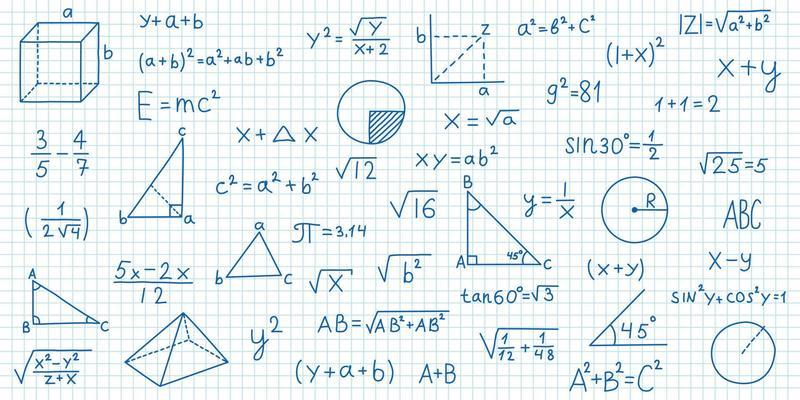 a
b
y+a+b
(a+b)²=a²+ab+b²
E=mc²
y²=√y/x+2
b
z
a
a²=b²+c²
|Z|=√a²+b²
(1+x)²
x+y
g²=81
1+1=2
3/5-4/7
c
b
a
x+△x
x=√a
sin30°=1/2
√25=5
(1/2√4)
c²=a²+b²
√12
xy=ab²
√16
B
A
45°
C
y=1/x
R
ABC
π=3,14
a
b
c
5x-2x/12
√x
√b²
(x+y)
x-y
A
B
C
tan60°=√3
sin²y+cos²y=1
y²
AB=√AB²+AB²
√1/12+1/48
45°
√x²-y²/z+x
(y+a+b)
A+B
A²+B²=C²